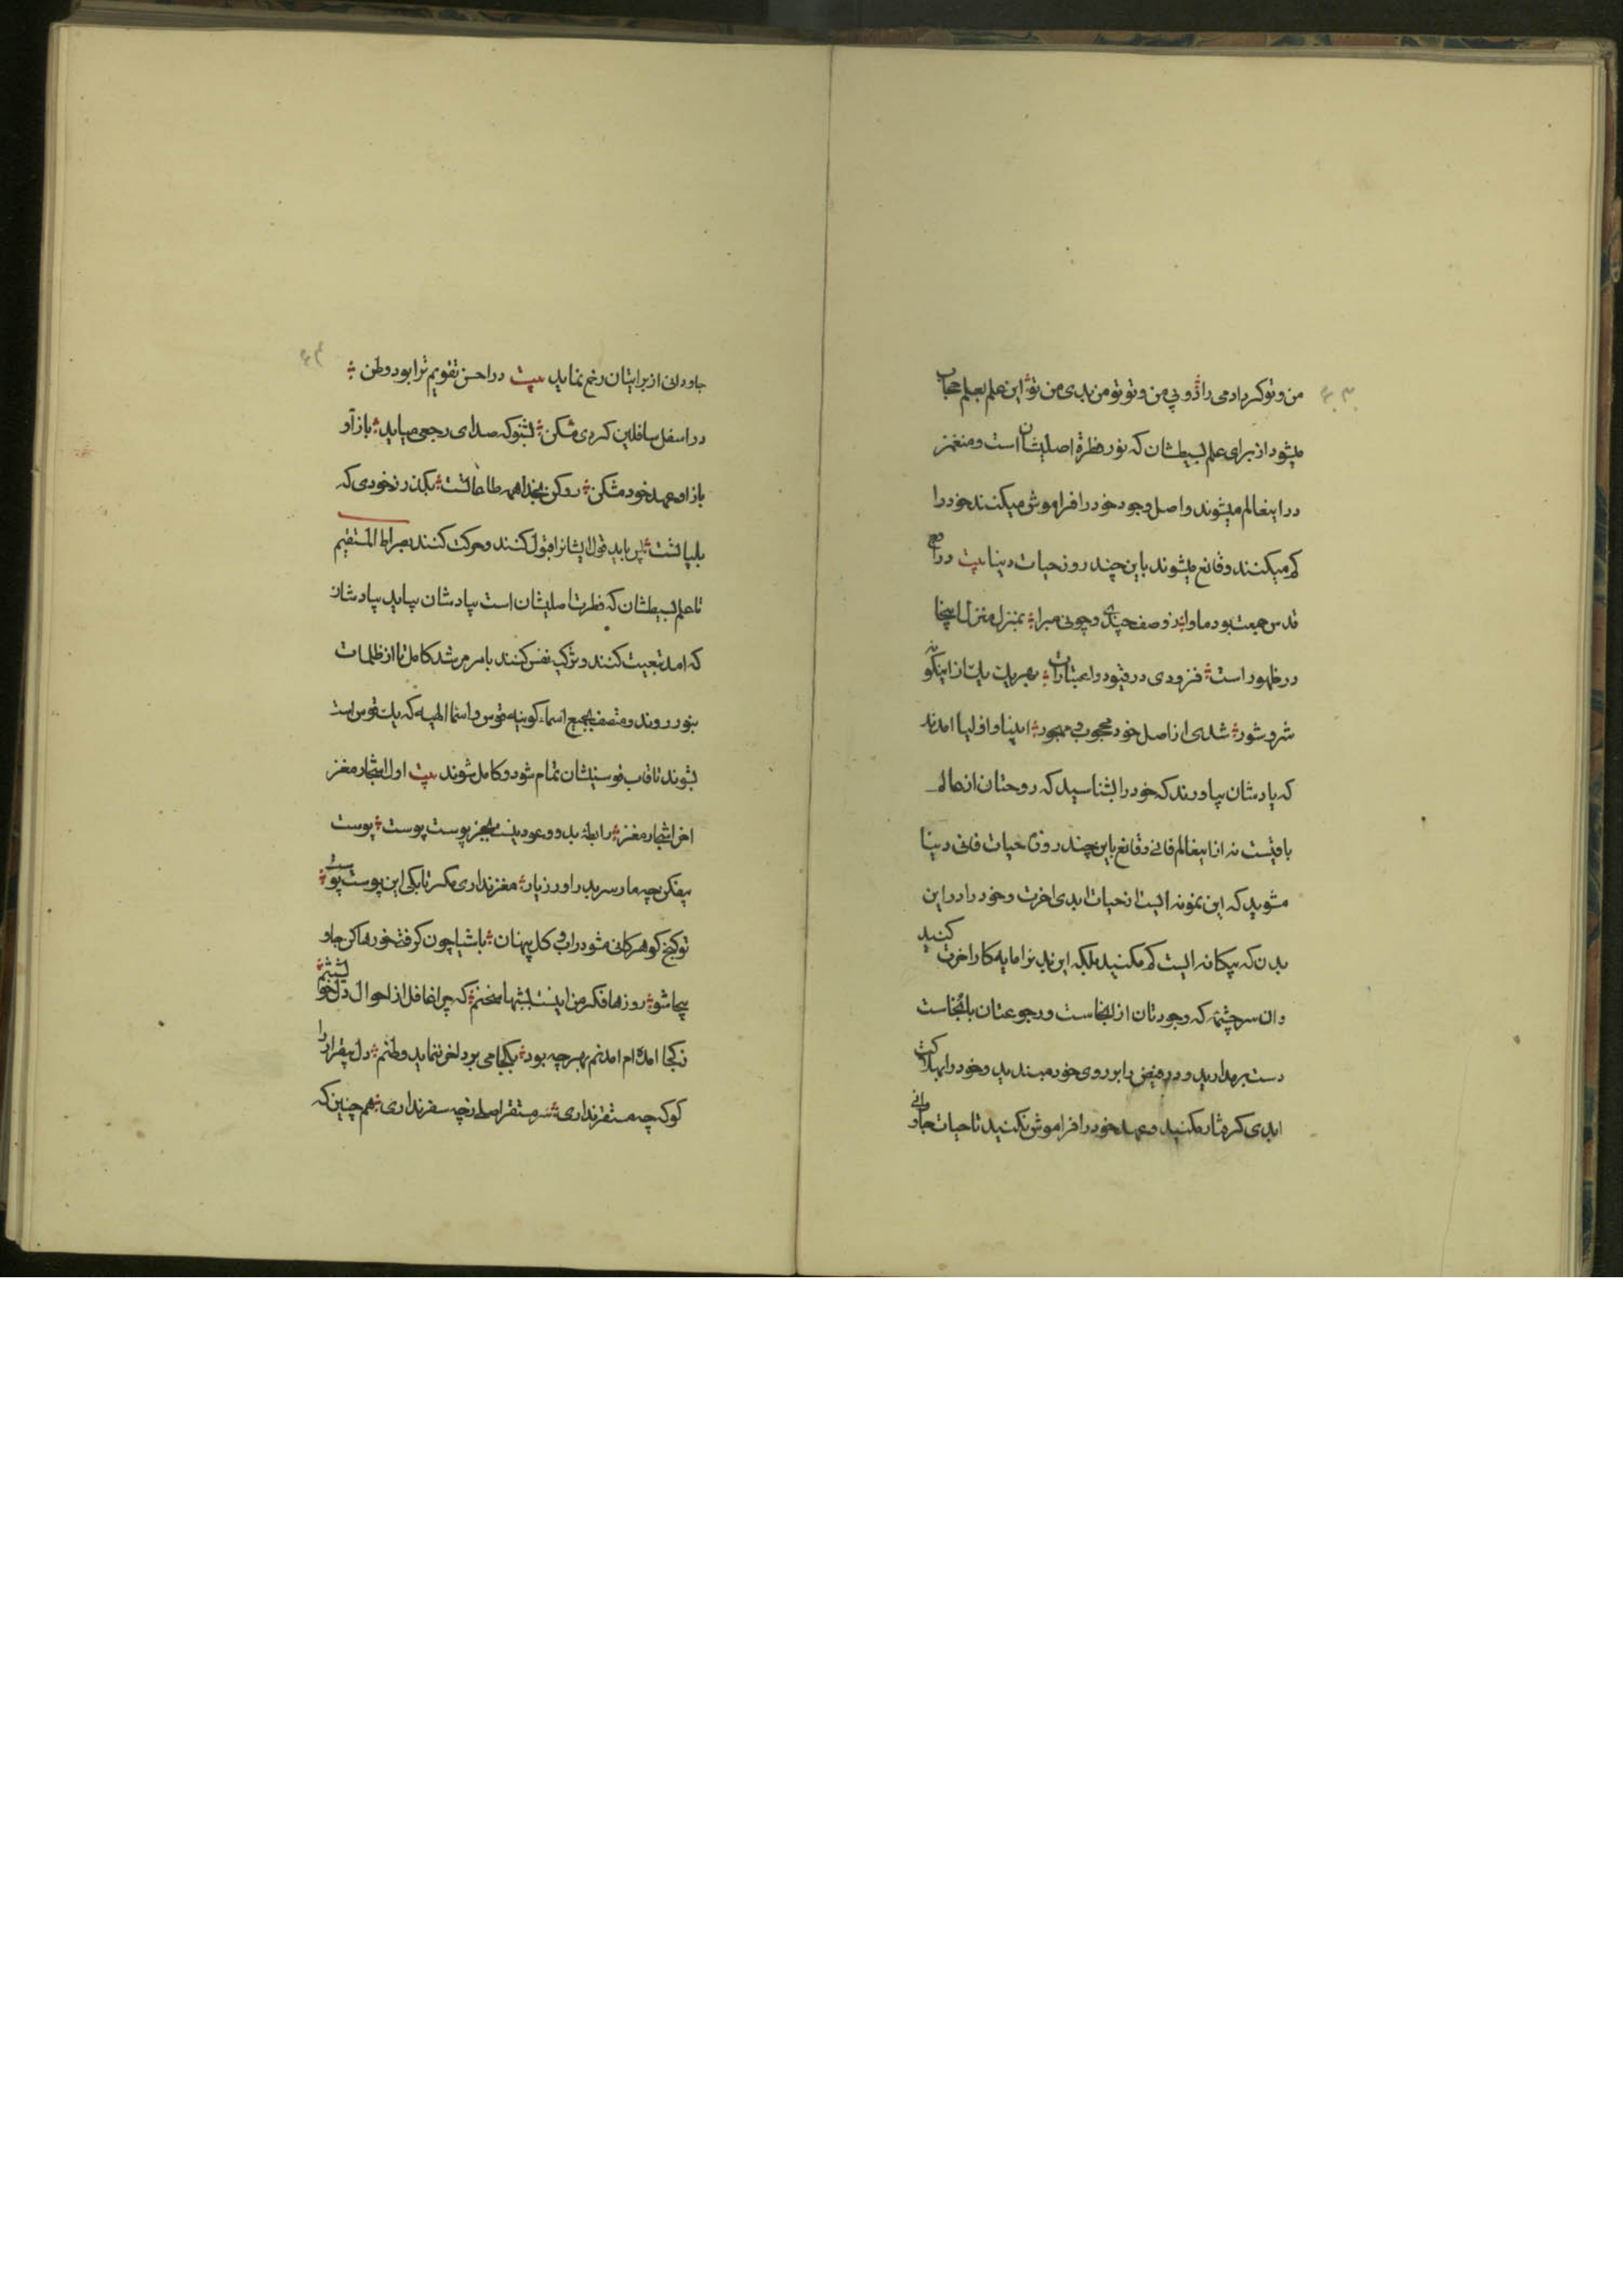 من و تو کرد ادمی را دو بی من و تو تو من بدی من تو این علم بعلم حجاب
میشود از برای علم بسیطشان که نور فطرة اصلیشان است و منغمز
در اینعالم میشوند و اصل وجود خود را فراموش میکنند خود را
کم میکنند و قانع میشوند باین چند روز حیات دنیا بیت در اوج
قدس جمعت بود ماوا ز وصف چندی و چونی مبرا بمنزل منزل اینجا
در ظهور است فزودی در قیود و اعتبارات بهر یک یک از اینکونه
شر و شور شدی از اصل خود محجوب و مهجور انبیا و اولیا امدند
که یادشان بیاورند که خود را بشناسید که روحتان از عالم
باقیست نه از اینعالم فانی و قانع باین چند روزه حیات فانی دنیا
مشوید که این نمونه ایست از حیات ابدی اخرت و خود را در این
بدن که بیکانه ایست کم مکنید بلکه این بدنرا مایه کار اخرت کنید
و ان سرچشمه که وجودتان از انجاست و رجوعتان بانجاست
دست بر مدارید و در فیض را بر روی خود مبندید و خود را بهلاکت
ابدی کرفتار مکنید و عهد خود را فراموش نکنید تا حیات جاودانی
جاودانی از برایتان رخ نماید بیت در احسن تقویم ترا بود وطن
در اسفل سافلین کردی مسکن بشنو که صدای رجعی میاید باز آ و
باز ا و عهد خود مشکن رو کن بخدا همه طاعات اینست بکذر ز خودی که
پس باید قول ایشانرا قبول کنند و حرکت کنند بصراط المستقیم
تا علم بسیطشان که فطرت اصلیشان است بیادشان بیاید بیادشان
که امد تبعیت کنند و تزکیه نفس کنند بامر مرشد کامل تا از ظلمات
بنور روند و متصف بجمیع اسماء کونیه قوس و اسما الهیه که یک قوس است
بشوند تا قاب قوسینشان تمام شود و کامل شوند بیت اول اشجار مغز
اخر اشجار مغز رابطه بدو و عود نیست بجز پوست پوست پوست
بیفکن چه مار سر بدر اور ز یار مغز نداری مکر تا بکی این پوست پوست
تو کنج کوهر کانی مشو در اب و کل پنهان باشیا چون کرفتی خو رها کن جا و
بیجا شو روزها فکر من اینست و شبها سخنم که چرا غافل از احوال دل خویشتنم
ز کجا امده ام امدنم بهر چه بود بکجا می برد اخر ننماید وطنم دل بیقرار را
کو که چه مستقر نداری سر مستقر اصلی ز چه سفر نداری همچنین که